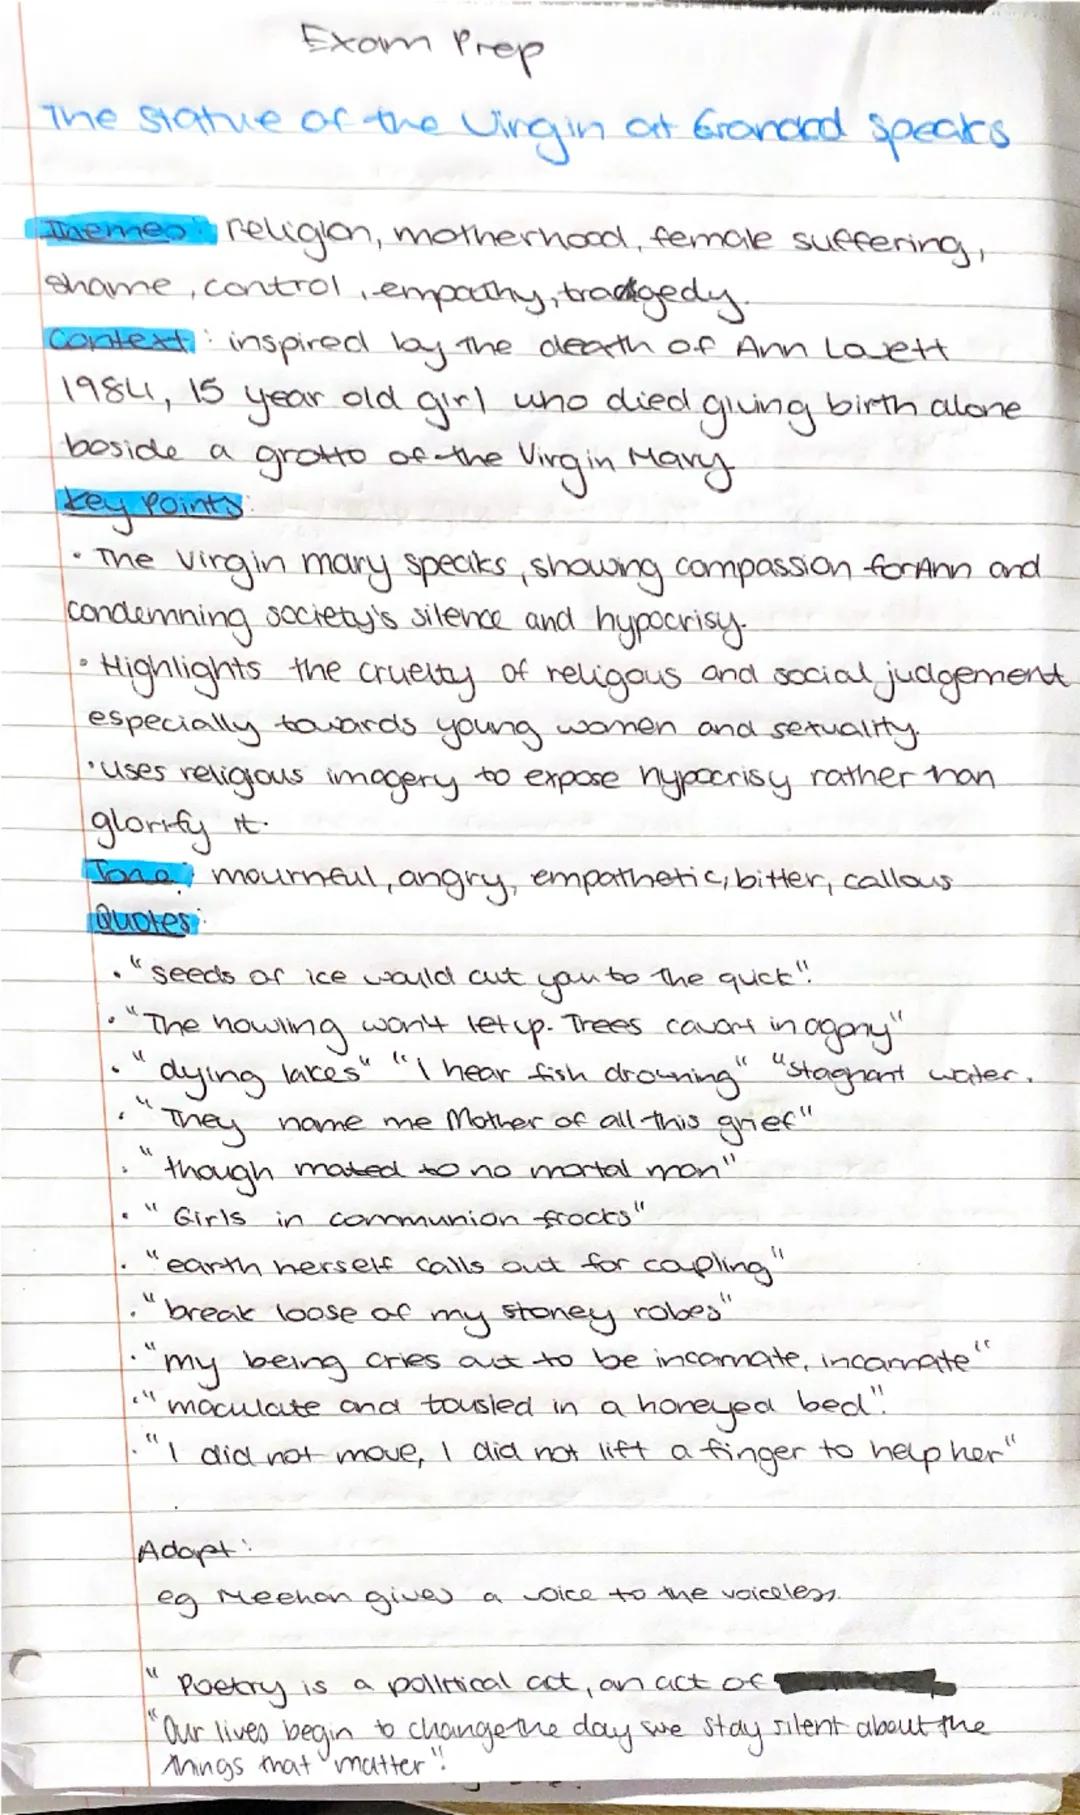 Exam Prep
The Statue of the Virgin at Granard Speaks
Themes: religion, motherhood, female suffering,
shame, control, empathy, tradgedy.
Context: inspired by the death of Ann Lovett
1984, 15 year old girl who died giving birth alone
beside a grotto of the Virgin Mary
Key Points:
• The Virgin mary speaks, showing compassion for Ann and
condemning society's silence and hypocrisy.
• Highlights the cruelty of religous and social judgement
especially towards young women and sexuality.
• uses religious imagery to expose hypocrisy rather than
glorify it.
Tone: mournful, angry, empathetic, bitter, callous
Quotes:
• "seeds of ice would cut you to the quick".
• "The howling won't let up. Trees cavort in agony"
• "dying lakes" "I hear fish drowning" "stagnant water.
• "They name me Mother of all this grief"
• "though mated to no mortal man"
• "Girls in communion frocks"
• "earth herself calls out for coupling"
• "break loose of my stoney robes"
• "my being cries out to be incarnate, incarnate"
• "maculate and tousled in a honeyed bed".
• "I did not move, I did not lift a finger to help her"
Adapt:
eg Meehan gives a voice to the voiceless.
"Poetry is a political act, an act of
"Our lives begin to change the day we stay silent about the
things that matter".